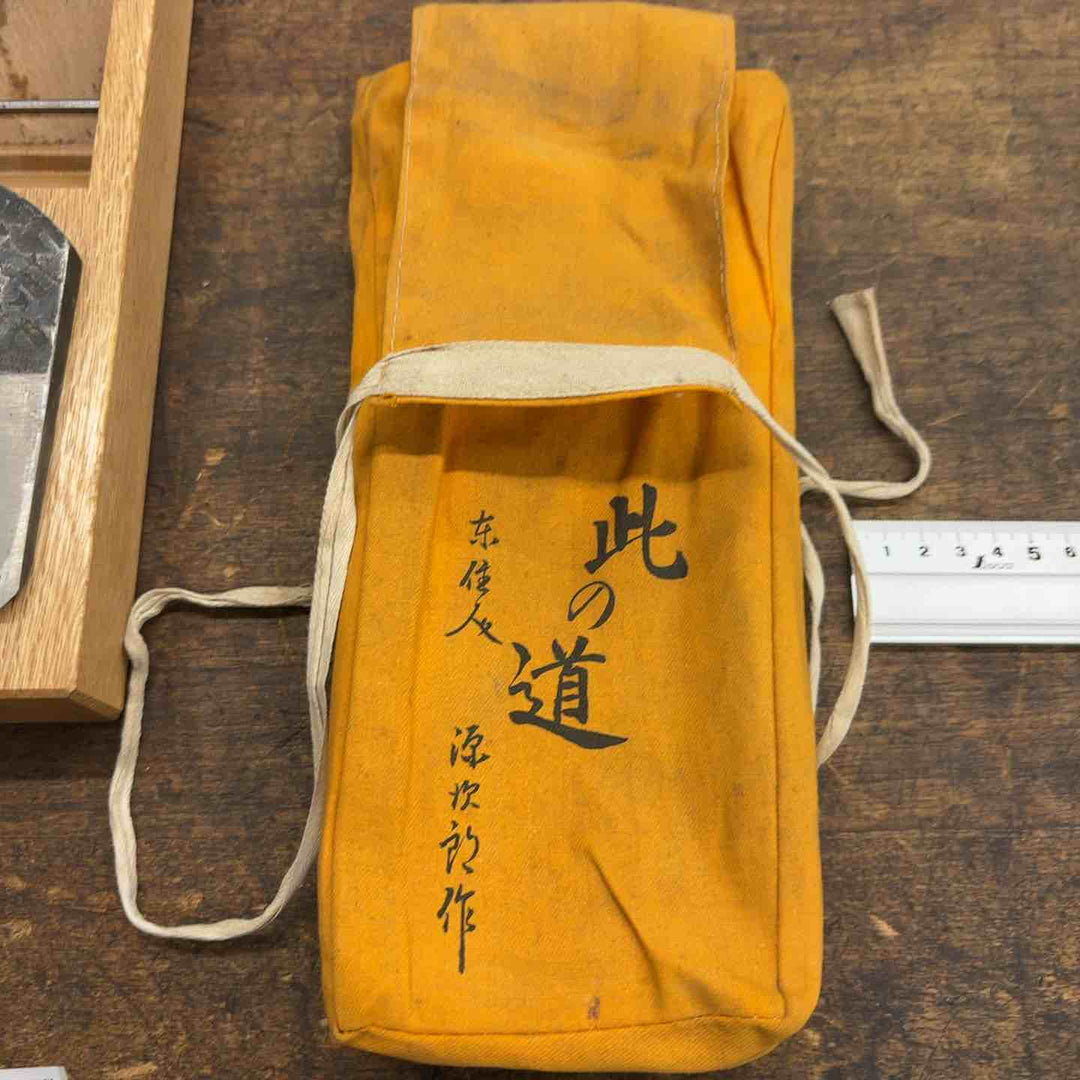 此の道
東住人
源次郎作
1 2 3 4 5 6